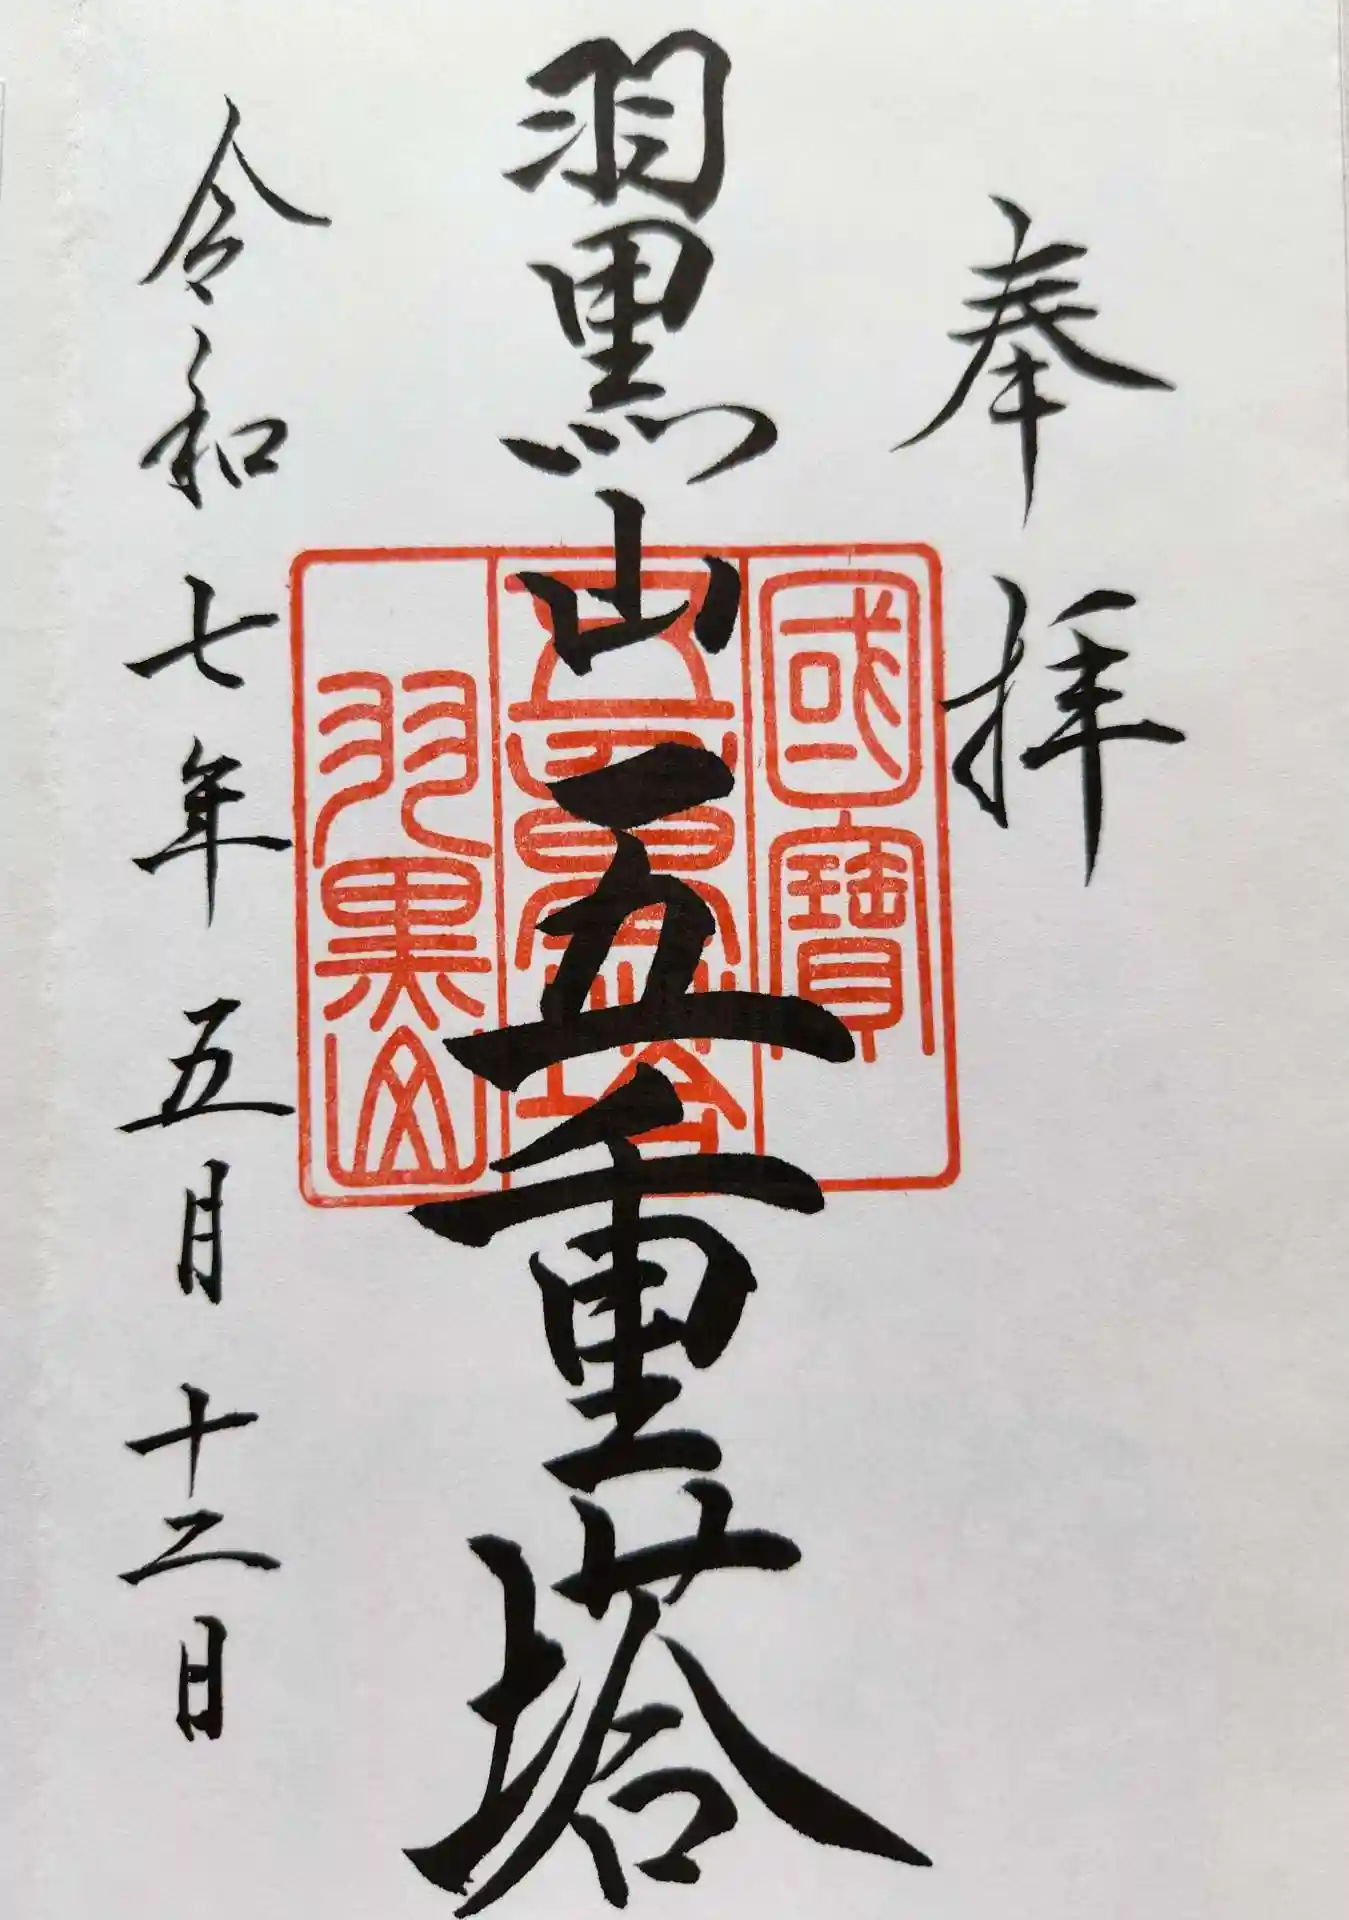 奉拝
國寳
五重塔
羽黒山
羽黒山五重塔
令和七年五月十二日